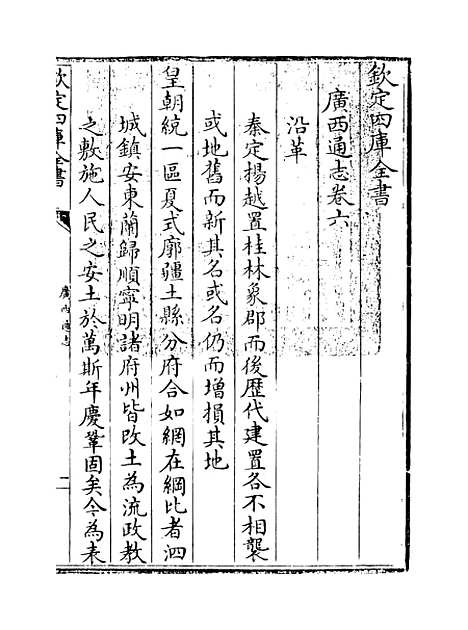 欽定四庫全書
廣西通志卷六
沿革
秦定揚越置桂林象郡而後歷代建置各不相襲
或地舊而新其名或名仍而增損其地
皇朝統一區夏式廓疆土縣分府合如網在綱比者泗
城鎮安東蘭歸順寧明諸府州皆改土為流政教
之敷施人民之安土於萬斯年慶鞏固矣今為表
欽定四庫全書
廣西通志